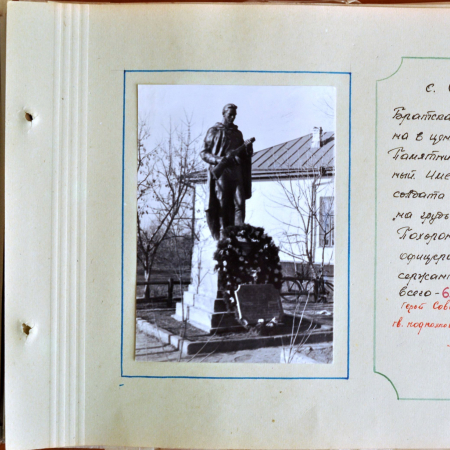 с. С
Братска
на в цен
Памятни
ный Име
солдата
на груд
Похорон
офицеро
сержан
всего - 6
Герой Сов
гв. подполко